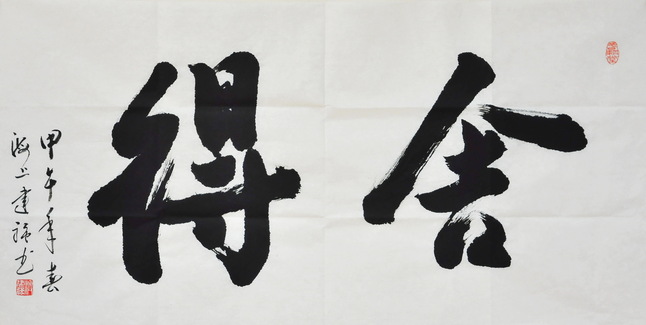 舍得
甲午年春
海上建书